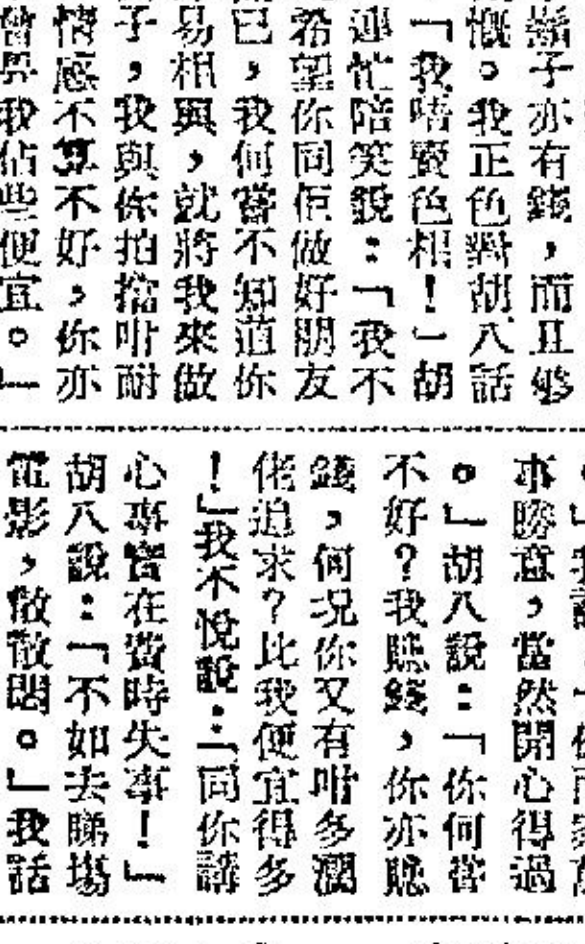 鬍子亦有錢，而且够
慨。我正色對胡八話
「我唔賣色相！」胡
連忙陪笑說：「我不
希望你同佢做好朋友
已，我何嘗不知道你
易相與，就將我來做
子，我與你拍擋咁耐
情感不算不好，你亦
曾畀我佔些便宜。」
事勝意，當然開心得過
。」胡八說：「你何嘗
不好？我賺錢，你亦賺
錢，何况你又有咁多濶
佬追求？比我便宜得多
！」我不悅說：「同你講
心事實在費時失事！」
胡八說：「不如去睇塲
電影，散散悶。」我話